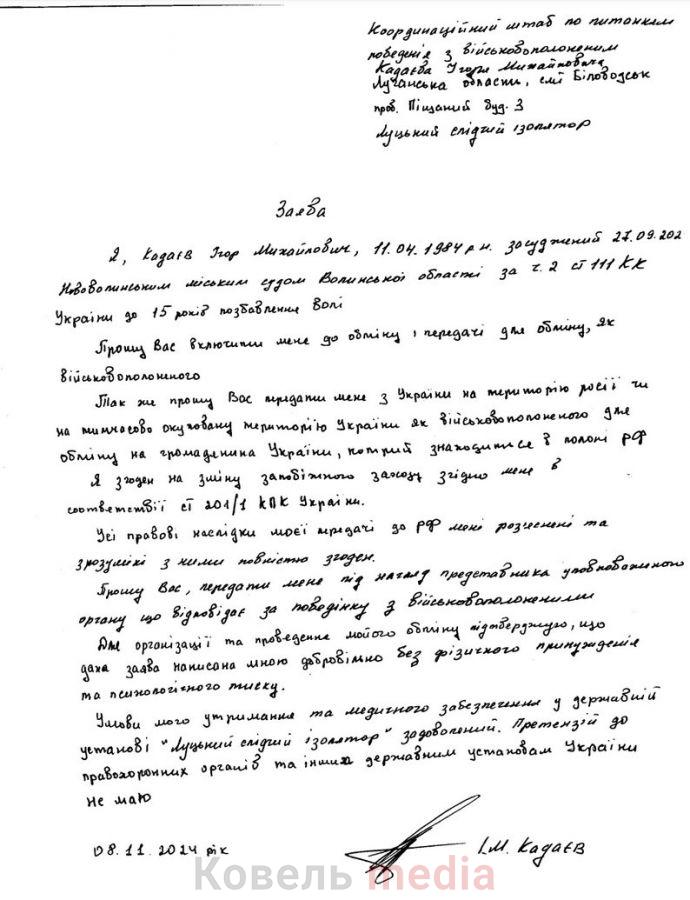 Координаційний штаб по питанням
поведенія з військовополоненим
Кадаєва Ігоря Михайловича
Луганська области, смт Біловодськ
пров. Піщаний буд. 3
Луцький слідчий ізолятор
Заява
Я, Кадаєв Ігор Михайлович, 11.04.1984 р.н. засуджений 27.09.202
Нововолинським міським судом Волинської області за ч. 2 ст 111 КК
України до 15 років позбавлення волі
Прошу Вас включити мене до обміну і передачі для обміну, як
військовополоненого
Так же прошу Вас передати мене з України на територію росії чи
на тимчасово окуповану територію України як військовополоненого для
обміну на громаденина України, котрий знаходитися в полоні РФ
Я згоден на зміну запобіжного заходу згідно мене в
соответствії ст 201/1 КПК України.
Усі правові наслідки моєї передачі до РФ мені розчеснені та
зрозумілі з ними повністю згоден.
Прошу Вас, передати мене під нагляд представника уповноваженого
органу що відповідає за поводінку з військовополоненими
Для організації та проведення мойого обміну підтверджую, що
дана заява написана мною добровільно без фізичного принужденія
та психологічного тиску.
Умови мого утримання та медичного забезпечення у державній
установі "Луцький слідчий ізолятор" задоволений. Претензій до
правохоронних органів та інших державним установам України
не маю
08.11.2024 рік І.М. Кадаєв
Ковель media